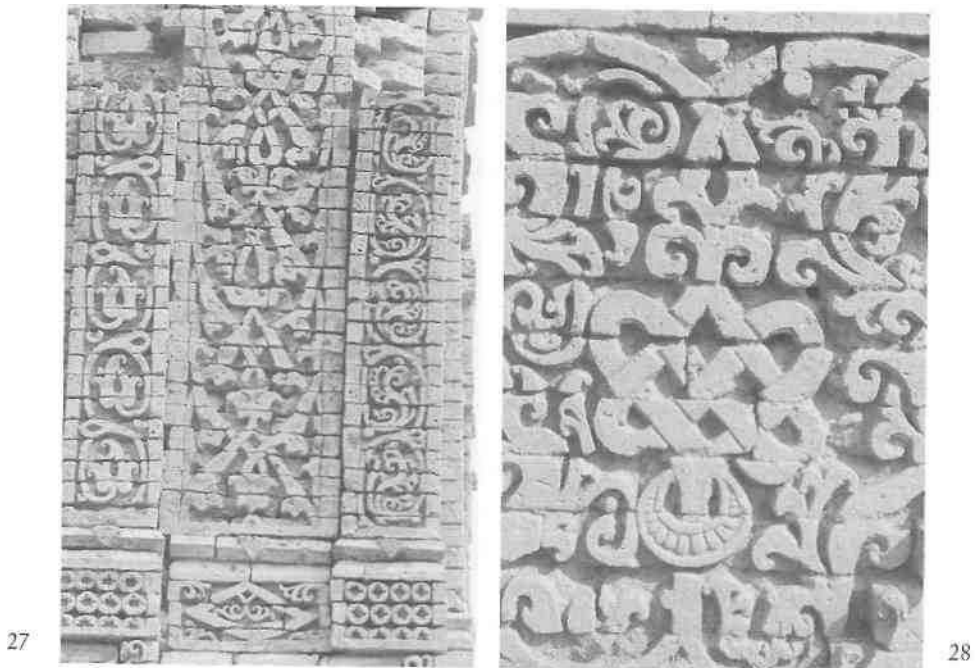 27
28